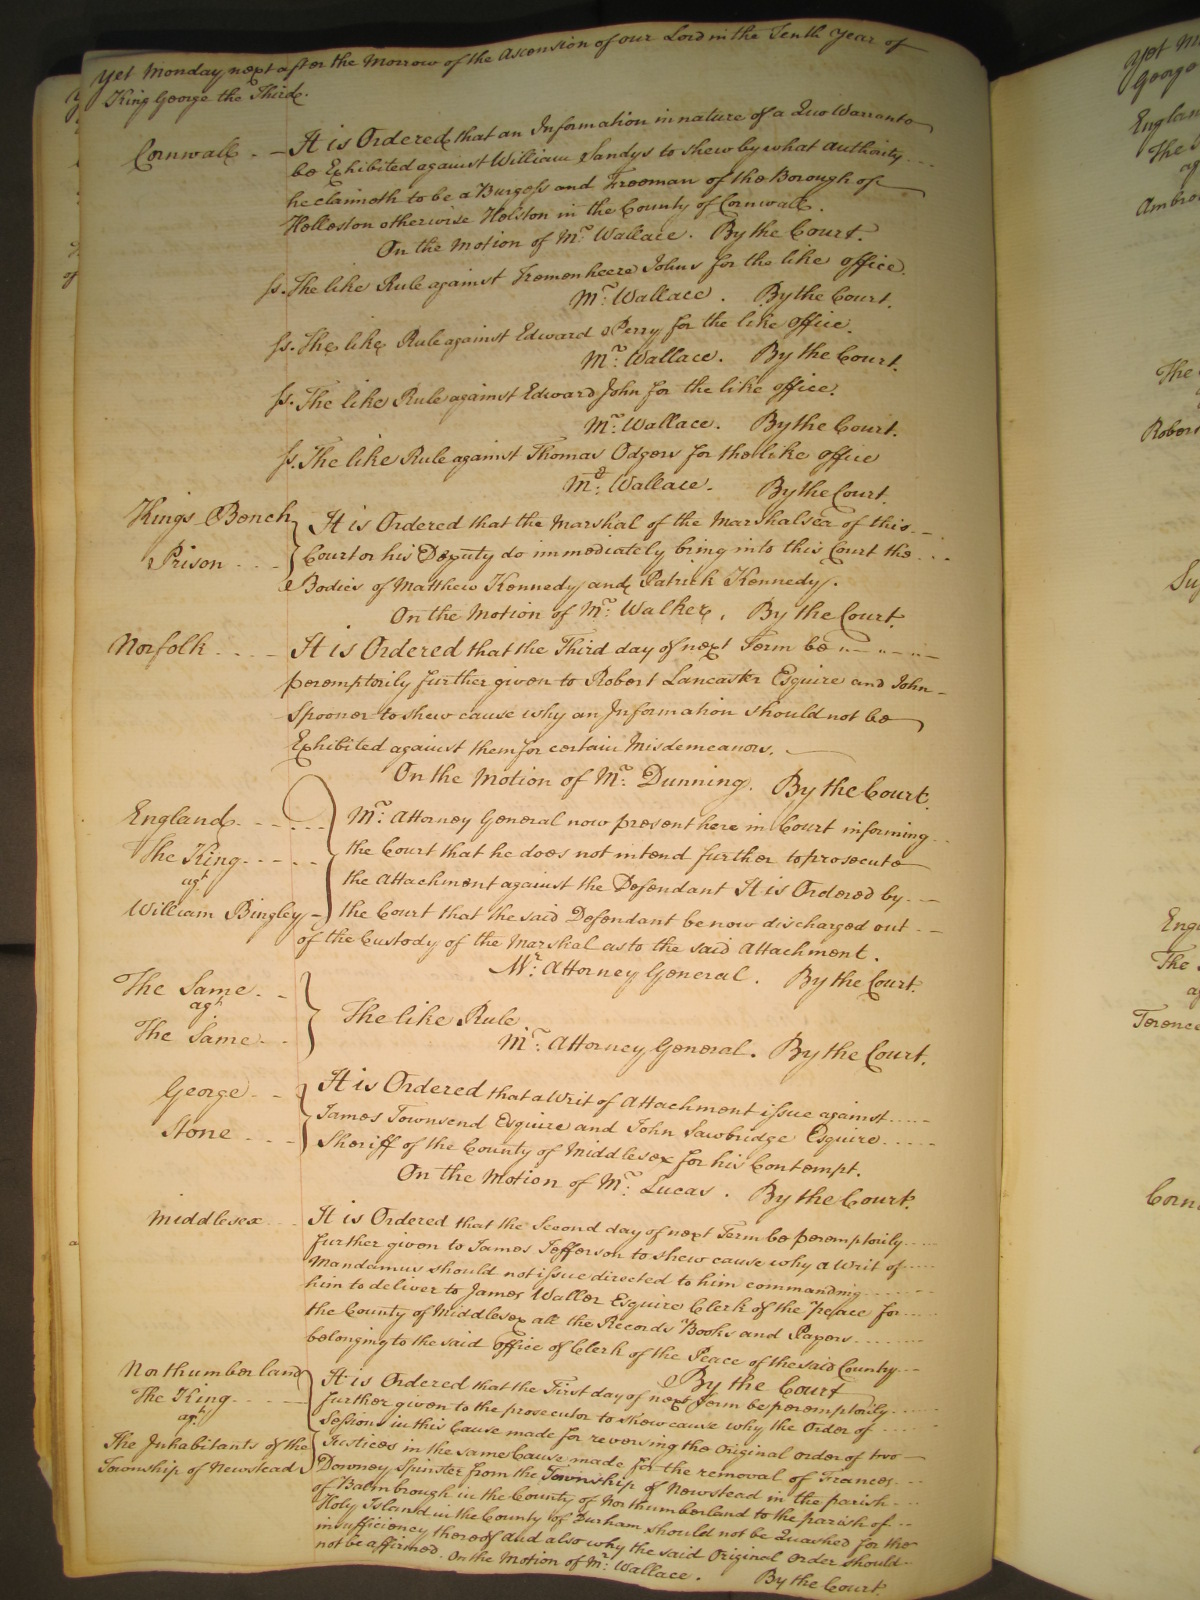 Yet Monday next after the Morrow of the Ascension of our Lord in the Tenth Year of
King George the Third.
Cornwall - - It is Ordered that an Information in nature of a Quo Warranto
be Exhibited against William Sandys to shew by what Authority
he claimeth to be a Burgess and Freeman of the Borough of
Helleston otherwise Helston in the County of Cornwall.
On the Motion of Mr. Wallace. By the Court.
ss. The like Rule against Tremenheere Johns for the like office.
Mr. Wallace. By the Court.
ss. The like Rule against Edward Perry for the like office.
Mr. Wallace. By the Court.
ss. The like Rule against Edward John for the like office.
Mr. Wallace. By the Court.
ss. The like Rule against Thomas Odgers for the like office
Mr. Wallace. By the Court.
Kings Bench It is Ordered that the Marshal of the Marshalsea of this
Prison Court or his Deputy do immediately bring into this Court the
Bodies of Matthew Kennedy and Patrick Kennedy.
On the Motion of Mr. Walker. By the Court.
Norfolk It is Ordered that the Third day of next Term be
peremptorily further given to Robert Lancaster Esquire and John
Spooner to shew cause why an Information should not be
Exhibited against them for certain Misdemeanors.
On the Motion of Mr. Dunning. By the Court.
England Mr. Attorney General now present here in Court informing
The King the Court that he does not intend further to prosecute
agt the Attachment against the Defendant It is Ordered by
William Bingley the Court that the said Defendant be now discharged out
of the Custody of the Marshal as to the said Attachment.
Mr. Attorney General. By the Court.
The Same
agt
The Same
The like Rule
Mr. Attorney General. By the Court.
George It is Ordered that a Writ of Attachment issue against
James Townsend Esquire and John Sawbridge Esquire
Stone Sheriff of the County of Middlesex for his Contempt.
On the Motion of Mr. Lucas. By the Court.
Middlesex It is Ordered that the Second day of next Term be peremptorily
further given to James Jefferson to shew cause why a Writ of
Mandamus should not issue directed to him commanding
him to deliver to James Waller Esquire Clerk of the Peace for
the County of Middlesex all the Records Books and Papers
belonging to the said office of Clerk of the Peace of the said County
By the Court
Northumberland It is Ordered that the First day of next Term be peremptorily
The King further given to the prosecutor to shew cause why the Order of
agt Sessions in this Cause made for reversing the Original order of two
The Inhabitants of the Justices in the same Cause made for the removal of Frances
Township of Newstead Downey Spinster from the Township of Newstead in the parish
of Bambrough in the County of Northumberland to the parish of
Holy Island in the County of Durham should not be Quashed for the
insufficiency thereof and also why the said Original Order should
not be affirmed. On the Motion of Mr. Wallace. By the Court.
Yet M
George
England
The
ag
Ambro
The
Robert
Su
Engl
The
ag
Terence
Corn